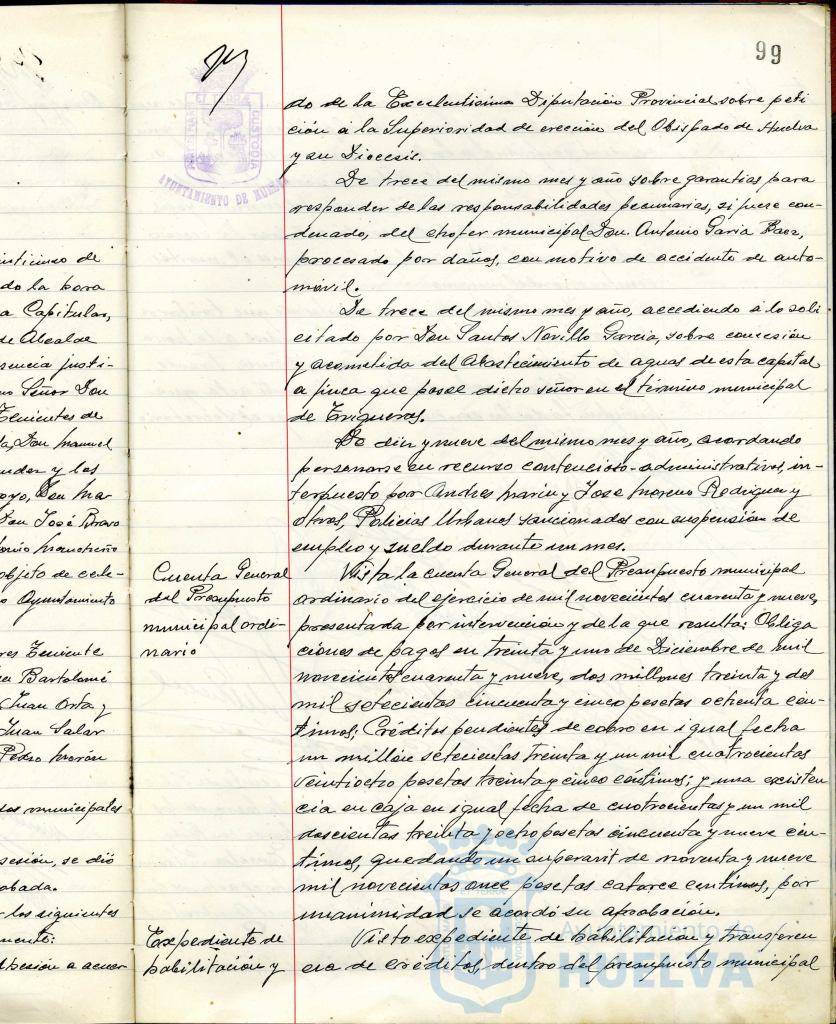 99
do de la Excelentisima Diputación Provincial sobre peti
ción á la Superioridad de erección del Obispado de Huelva
y su Diocesis.
De trece del mismo mes y año sobre garantias para
responder de las responsabilidades pecuniarias, si fuere con-
denado, del chofer municipal Don Antonio Garia Baez,
procesado por daños, con motivo de accidente de auto-
móvil.
De trece del mismo mes y año, accediendo á lo soli
citado por Don Santos Novillo Garcia, sobre concesión
y acometida del Abastecimiento de aguas de esta capital
a finca que posee dicho señor en el término municipal
de Trigueros.
De diez y nueve del mismo mes y año, acordando
personarse en recurso contencioso-administrativo, in-
terpuesto por Andres Marin y Jose Moreno Rodriguez y
otros, Policias Urbanos sancionados con suspensión de
empleo y sueldo durante un mes.
Cuenta General
del Presupuesto
municipal ordi-
nario
Vista la cuenta General del Presupuesto municipal
ordinario del ejercicio de mil novecientos cuarenta y nueve,
presentada por intervención y de la que resulta: Obliga
ciones de pagos en treinta y uno de Diciembre de mil
novecientos cuarenta y nueve, dos millones treinta y dos
mil setecientas cincuenta y cinco pesetas ochenta cén-
timos; Créditos pendientes de cobro en igual fecha
un millón setecientas treinta y un mil cuatrocientas
veintiocho pesetas treinta y cinco céntimos; y una existen
cia en caja en igual fecha de cuatrocientas y un mil
doscientas treinta y ocho pesetas cincuenta y nueve cén-
timos, quedando un superavit de noventa y nueve
mil novecientas once pesetas catorce centimos, por
unanimidad se acordó su aprobación.
Expediente de
habilitación y
Visto expediente de habilitación y transferen
cia de créditos, dentro del presupuesto municipal
AYUNTAMIENTO DE HUELVA
inticinco de
do la hora
a Capitular,
de Alcalde
sencia justi-
Señor Don
Tenientes de
Don Manuel
nder y los
oyo, Don Mar
Don José Bravo
onio Mancheño
objeto de cele-
o Ayuntamiento
res Teniente
Bartolomé
Juan Orta y
Juan Salar
Pedro Morón
dos municipales
sesión, se dió
obada.
los siguientes
mente:
dhesión a acuer
Ayuntamiento de
HUELVA